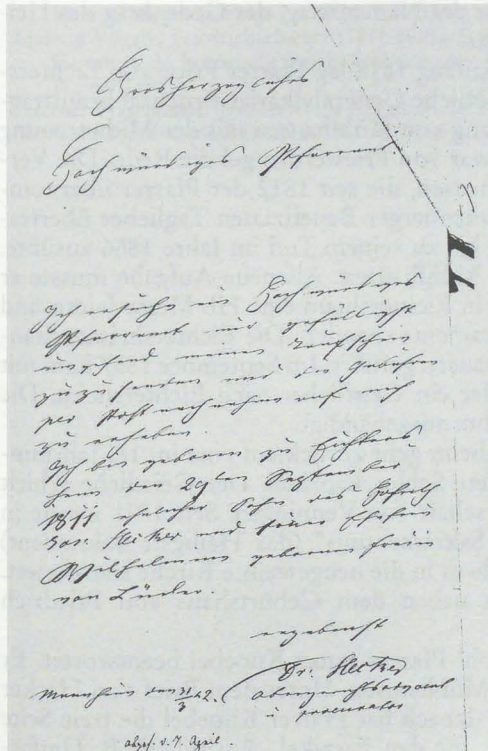 Grosherzogliches
Hochwürdiges Pfarramt
Ich ersuche ein Hochwürdiges
Pfarramt mir gefälligst
umgehend meinen Taufschein
zuzusenden und die Gebühren
per Post nachnahme auf mich
zu erheben
Ich bin geboren zu Eichters
heim 29 September
1811 ehelicher Sohn des Hofrath
Jos. Hecker & seiner Ehefrau
Wilhelmine geborene Freiin
von Lüder
ergebenst
Dr. Hecker
Mannheim den 31/3 42. Obergerichtsadvocat
u Procurator
abges. d. 7. April.